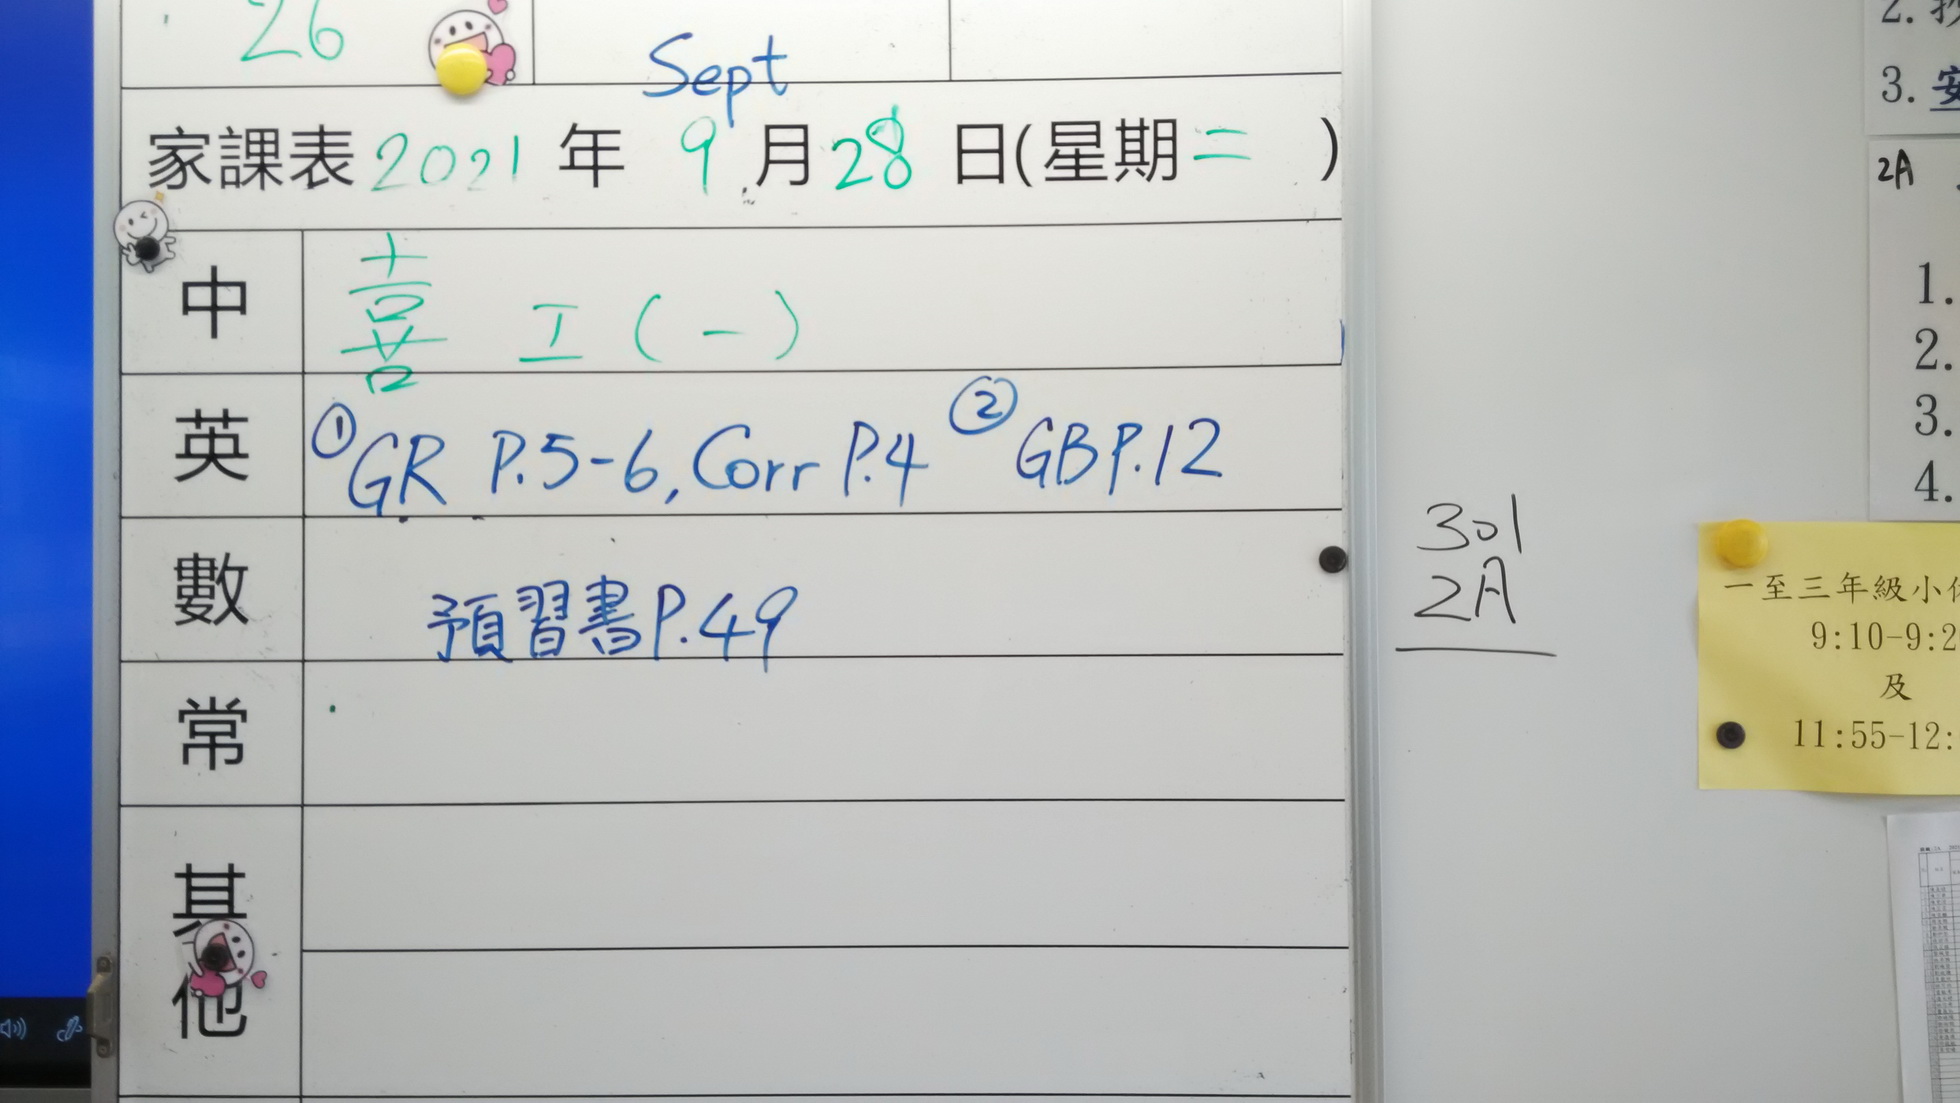 26
Sept
家課表 2021 年 9 月 28 日(星期二 )
中 喜 工(一)
英 ①GR P.5-6, Corr P.4 ②GB P.12
數 預習書P.49
常
其他
301
2A
2.
3. 安
2A
1.
2.
3.
4.
一至三年級小
9:10-9:2
及
11:55-12: